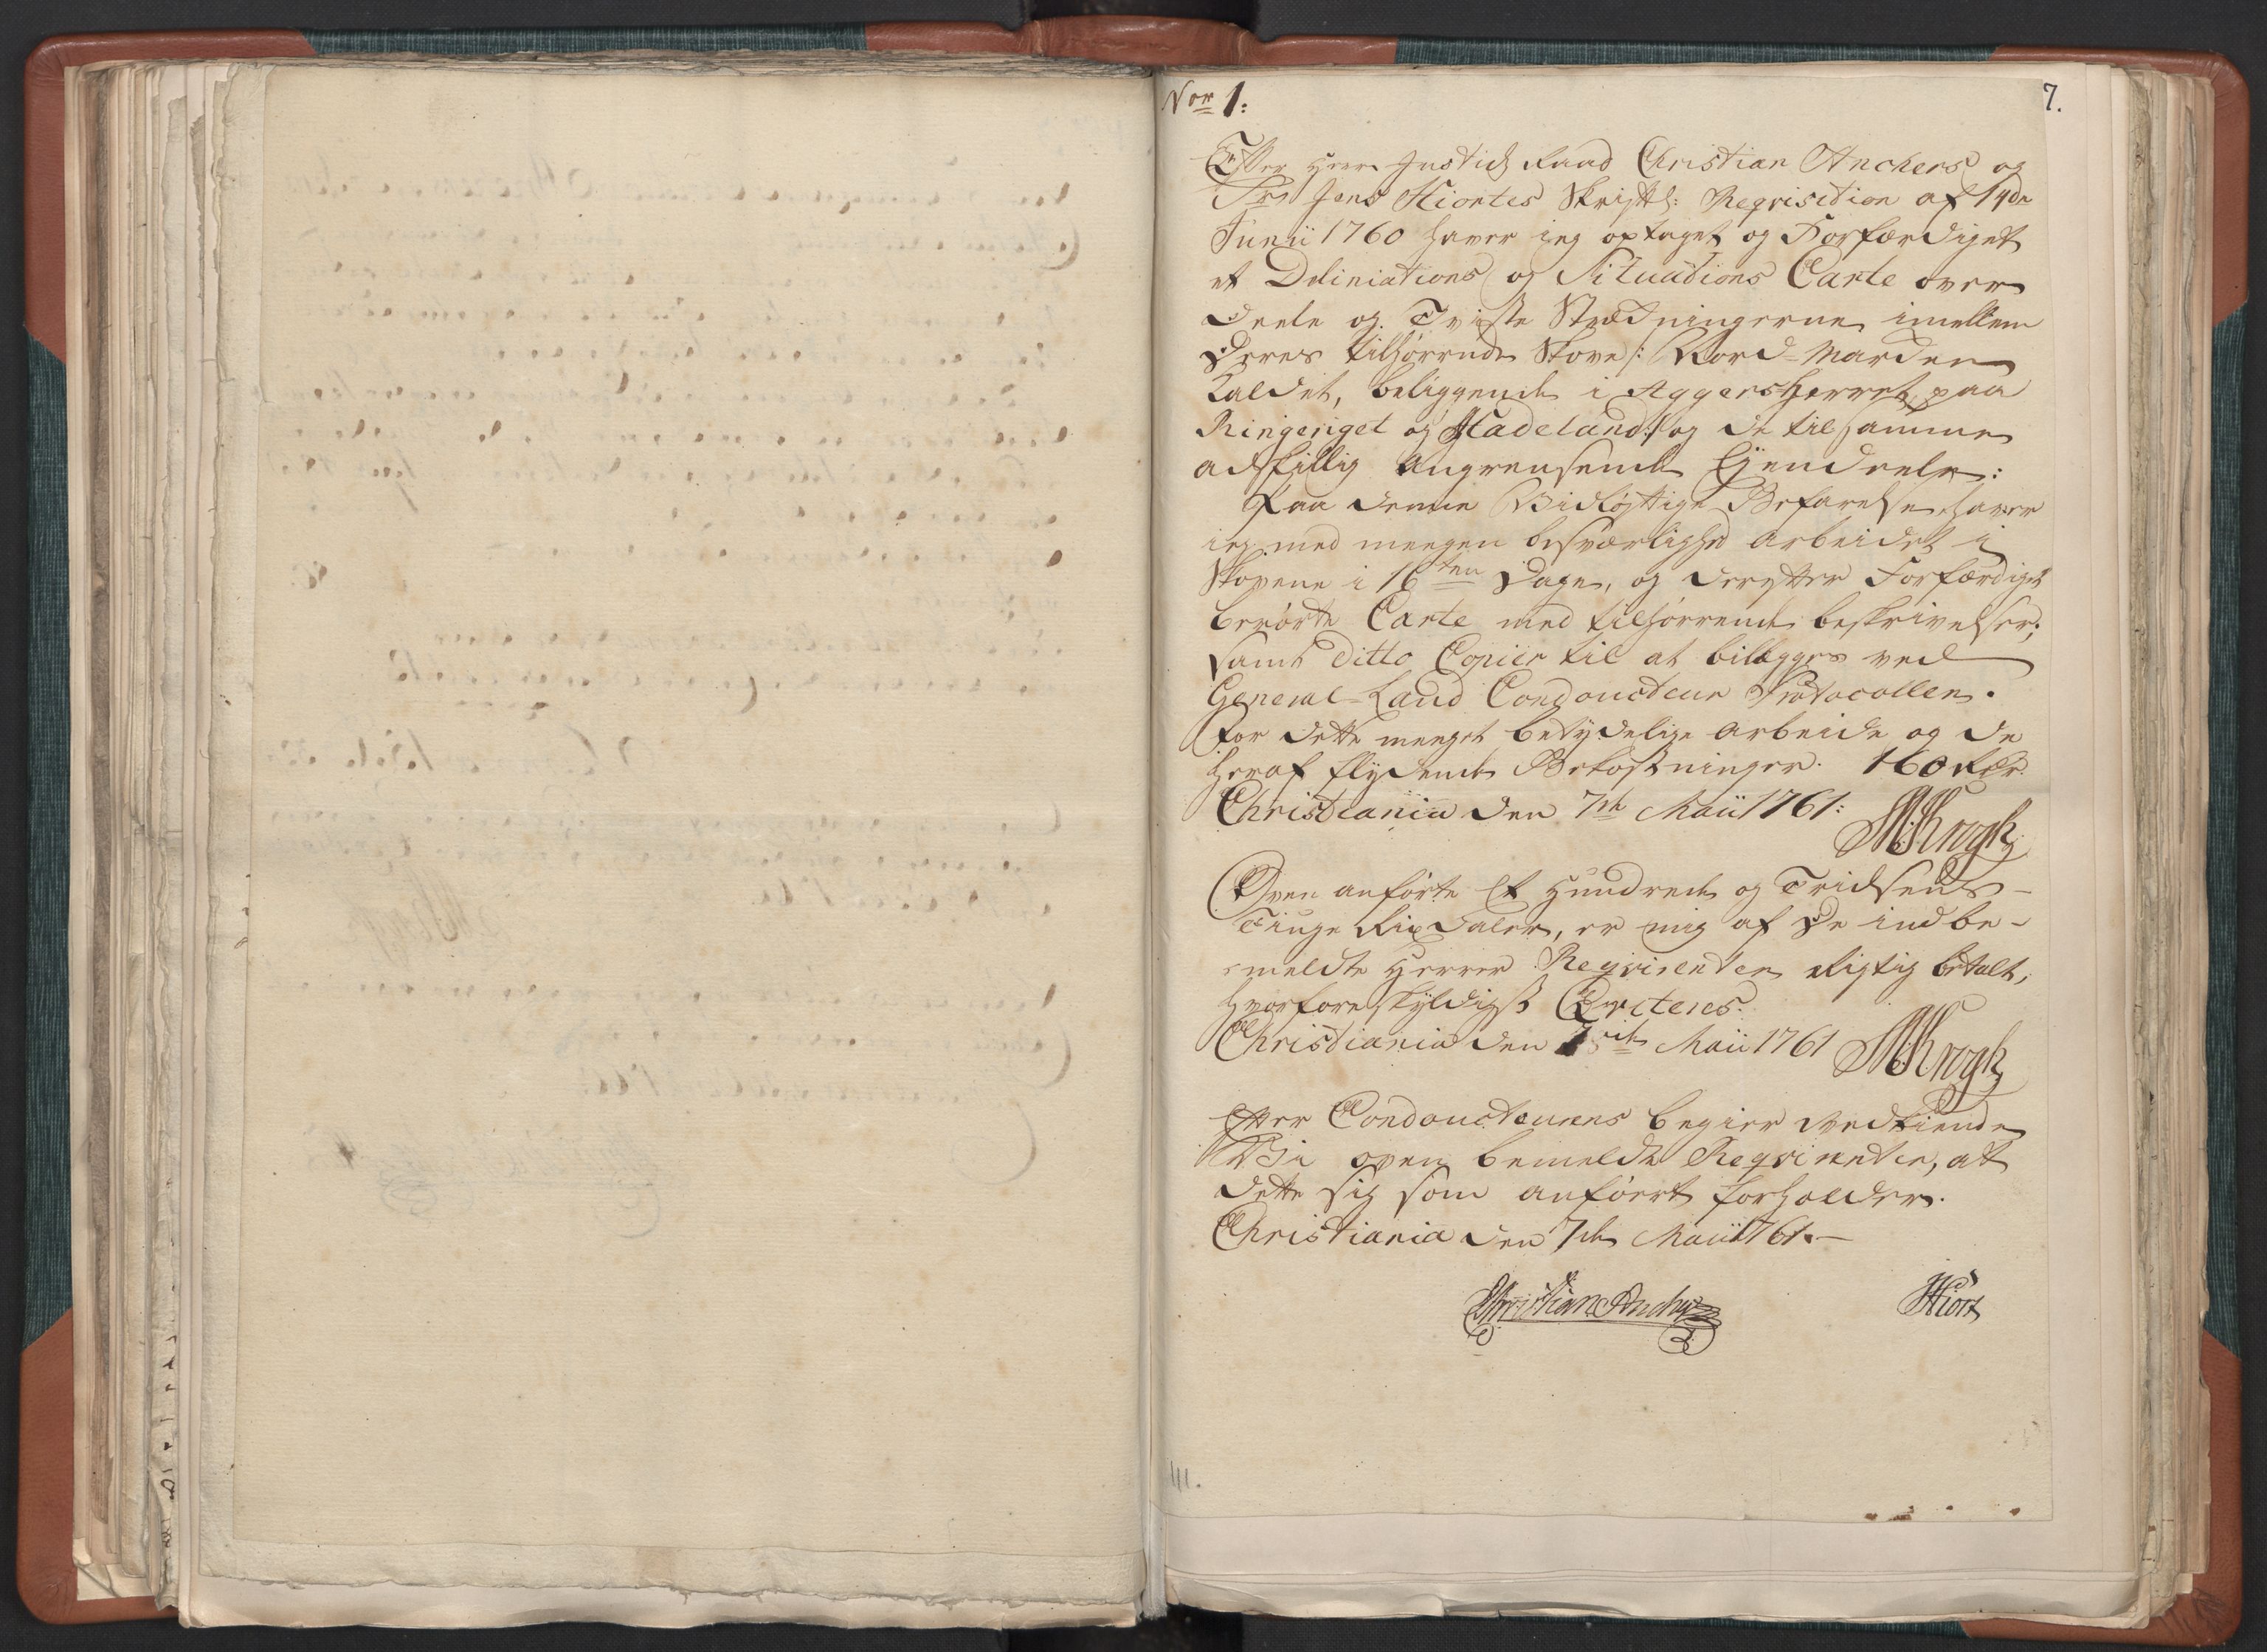 Nor 1:
7.
Efter Herr Justitz Raad Christian Anchers og
Sr Jens Hiortes Skriftl: Reqvisition af 14de
Junii 1760 haver jeg optaget og Forfærdiget
et Deliniations og Situations Carte over
Deele og Tviste Strækningerne imellem
Deres tilhørende Skove /: Nord-Marchen
Kaldet, beliggende i Aggers Herret, paa
Ringeriget og Hadeland :/ og de til samme
adskillig Angrensende Ejendeele:
Paa denne Vidløftige Befarelse haver
jeg med meegen besværlighed arbeidet i
Skovene i 16ten Dage, og derefter Forfærdiget
berørte Carte med tilhørrende beskrivelser;
samt ditto Copiir til at bilægges ved
General-Land Condoucteur Protocollen.
For dette meeget betydelige arbeide og de
heraf flydende Bekostninger. 160 Rdr.
Christiania den 7de Maii 1761:
Krogh
Oven anførte Et Hundrede og Tredsens-
Tiuge Rixdaler, er mig af De indbe-
meldte Herrer Reqvirenter Rigtig betalt,
hvorfore skyldigst Qviteres.
Christiania den Maii 1761 Krogh
Efter Condoucteurens begier vedkiende
Vi oven bemeldte Reqvirenter, at
dette sig som anført forholder.
Christiania den 7de Maii 1761.-
Christian Ancher
Hiort
111.